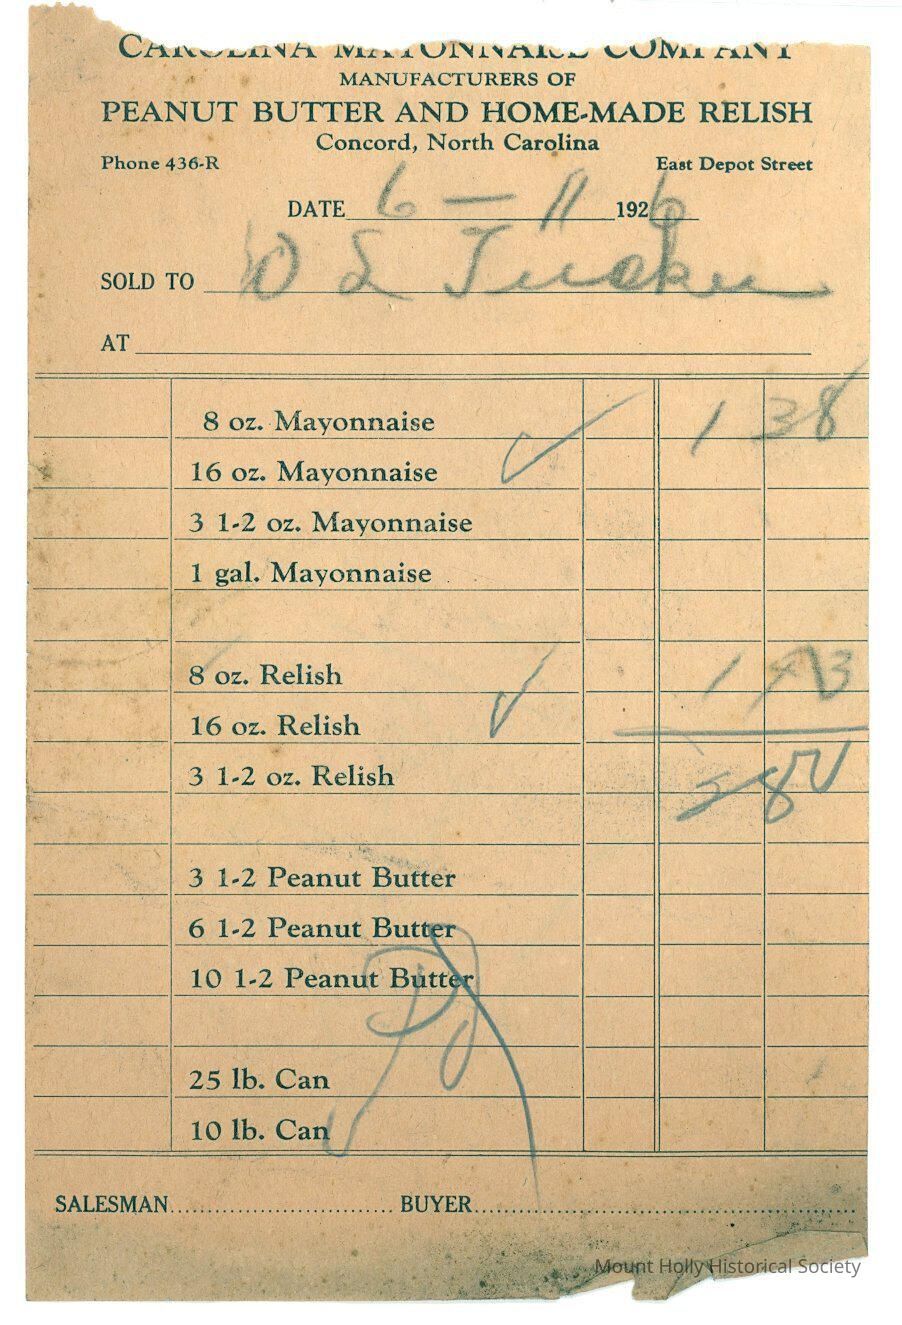 CAROLINA MAYONNAISE COMPANY
MANUFACTURERS OF
PEANUT BUTTER AND HOME-MADE RELISH
Concord, North Carolina
Phone 436-R East Depot Street
DATE 6 — 11 1926
SOLD TO D L Tucker
AT
8 oz. Mayonnaise 1 38
16 oz. Mayonnaise
3 1-2 oz. Mayonnaise
1 gal. Mayonnaise
8 oz. Relish 1
16 oz. Relish
3 1-2 oz. Relish
3 1-2 Peanut Butter
6 1-2 Peanut Butter
10 1-2 Peanut Butter
25 lb. Can
10 lb. Can
SALESMAN BUYER
Mount Holly Historical Society